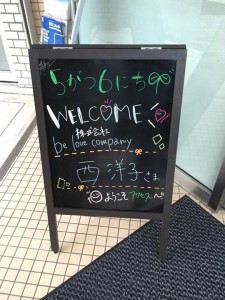 5がつ6にち
WELCOME
株式会社
be love company
西 洋子さま
ようこそ アクセスへ!!